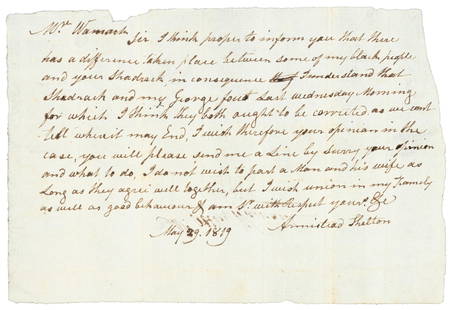 Mr. Wamack
Sir I think proper to inform you that there
has a difference taken place between some of my black people
and your Shadrack, in consequence I understand that
Shadrack and my George fout Last wednesday Morning
for which I think they both ought to be corrected as we cant
tell where it may End, I wish therefore your opinion in the
case, you will please send me a Line by your opinion
and what to do, I do not wish to part a Man and his wife as
Long as they agree well together, but I wish union in my Family
as well as good behaviour & am Sr. with Respect your &c
May 29. 1819 Armistead Shelton